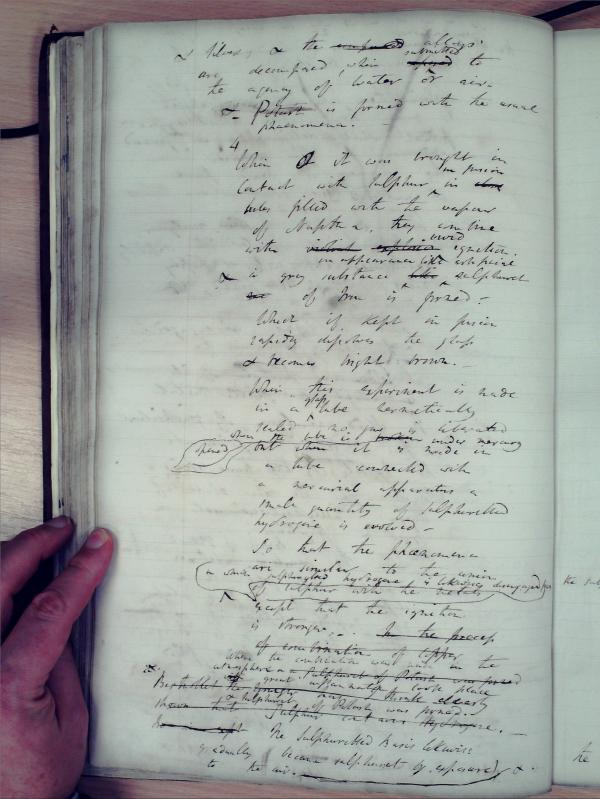 & silver, & the ~~compound~~ alloys
are decomposed, when ~~exposed~~ submitted to
the agency of water or air.
& Potash is formed with the usual
phaenomena.
4
When it was brought in
contact with sulphur in fusion in
tubes filled with the vapour
of Naphtha, they combine
with ~~violent~~ ~~explosion~~ vivid ignition.
& a grey substance in appearance like artificial sulphuret
of Iron is formed.
Which if kept in fusion
rapidly dissolves the glass
& becomes bright brown.
When this experiment is made
in a glass tube hermetically
sealed no gas is liberated
when the tube is opened under mercury
but when it is made in
a tube connected with
a mercurial apparatus a
small quantity of sulphuretted
hydrogene is evolved
So that the phaenomena
are similar to the union
of sulphur with the metals
in which sulphurated hydrogene is likewise disengaged
except that the ignition
is stronger. ~~In the process~~
~~of combination of copper~~
when the combination was made in the
atmosphere a great inflammation took place
& sulphuret of Potash was formed.
The sulphuretted basis likewise
gradually became sulphuret by exposure
to the air.
the